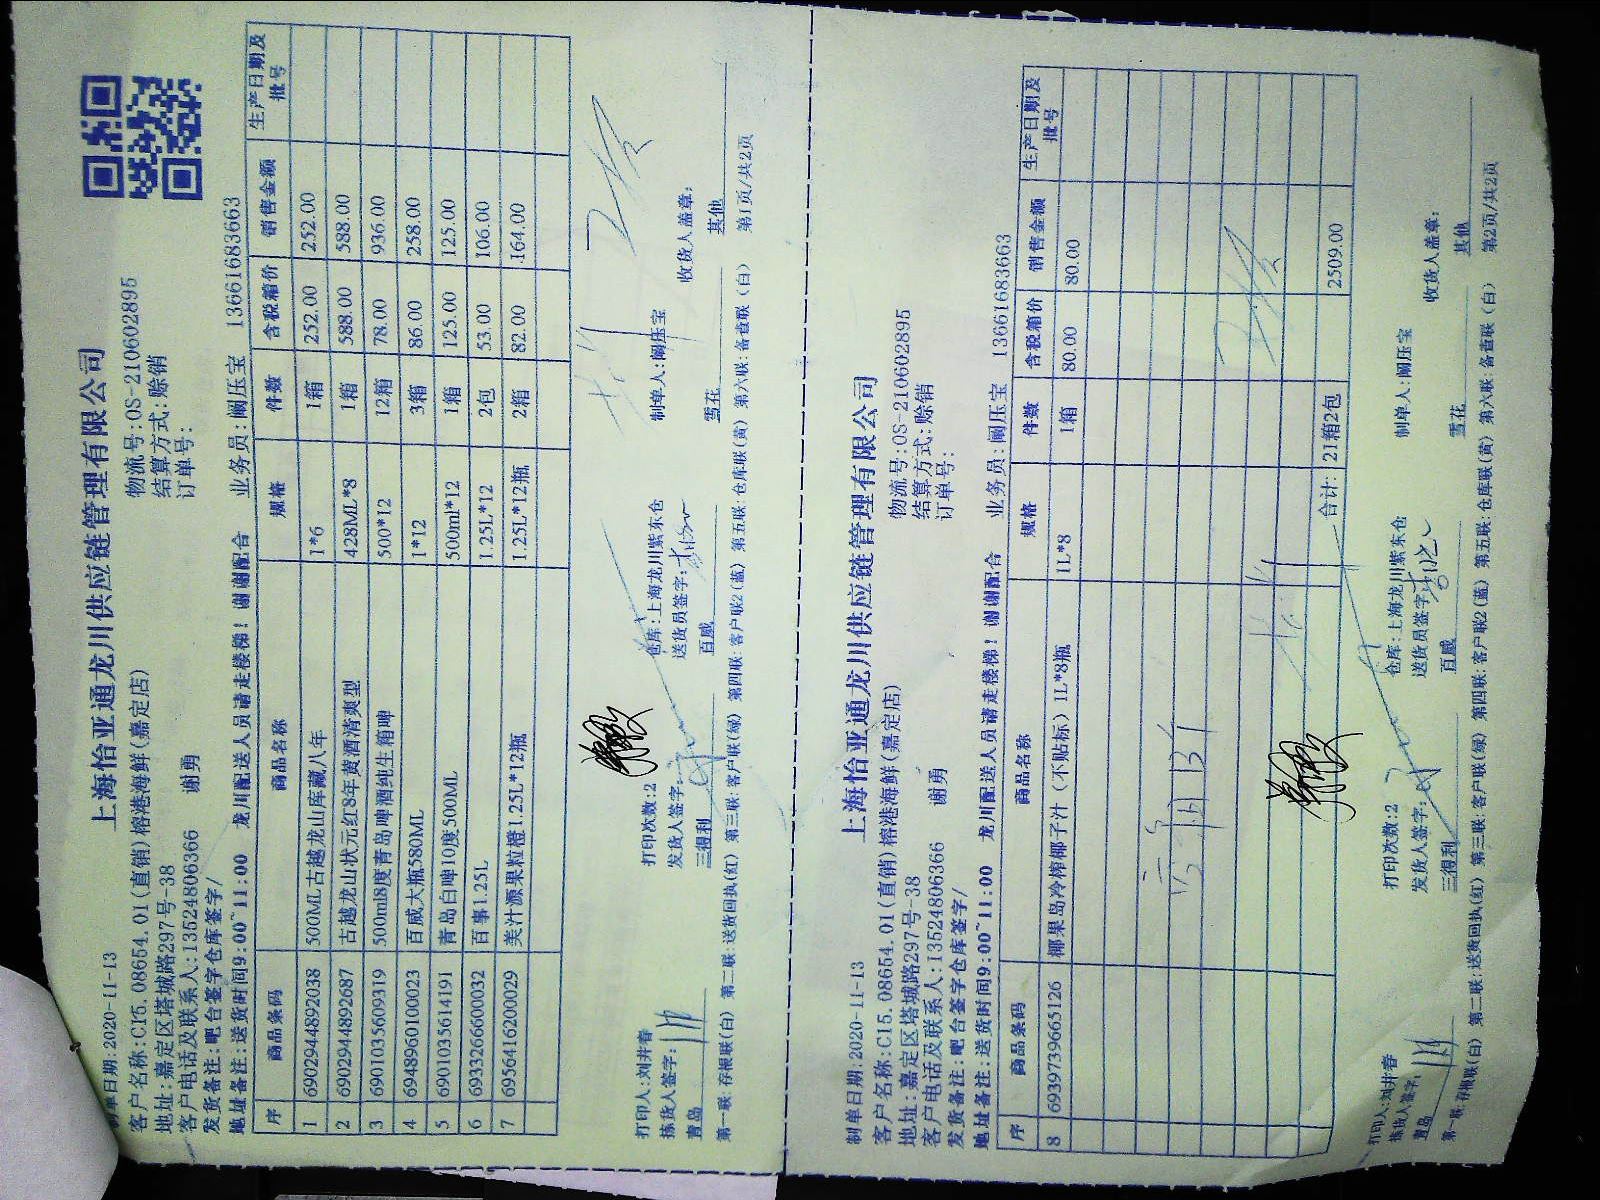 上海怡亚通龙川供应链管理有限公司
制单日期:2020-11-13 物流号:OS-210602895
客户名称:C15.08654.01(直销)榕港海鲜(嘉定店) 结算方式:赊销
地址:嘉定区塔城路297号-38 订单号:
客户电话及联系人:13524806366 谢勇
发货备注:吧台签字仓库签字/
地址备注:送货时间9:00~11:00 龙川配送人员请走楼梯!谢谢配合 业务员:阚压宝 13661683663
序 商品条码 商品名称 规格 件数 含税箱价 销售金额 生产日期及批号
1 6902944892038 500ML古越龙山库藏八年 1*6 1箱 252.00 252.00
2 6902944892687 古越龙山状元红8年黄酒清爽型 428ML*8 1箱 588.00 588.00
3 6901035609319 500ml8度青岛啤酒纯生箱啤 500*12 12箱 78.00 936.00
4 6948960100023 百威大瓶580ML 1*12 3箱 86.00 258.00
5 6901035614191 青岛白啤10度500ML 500ml*12 1箱 125.00 125.00
6 6933266600032 百事1.25L 1.25L*12 2包 53.00 106.00
7 6956416200029 美汁源果粒橙1.25L*12瓶 1.25L*12瓶 2箱 82.00 164.00
打印人:刘井春 打印次数:2 仓库:上海龙川紫东仓 制单人:阚压宝
拣货人签字: 发货人签字: 送货员签字: 收货人盖章:
青岛 三得利 百威 雪花 其他
第一联:存根联(白) 第二联:送货回执(红) 第三联:客户联(绿) 第四联:客户联2(蓝) 第五联:仓库联(黄) 第六联:备查联(白) 第1页/共2页
上海怡亚通龙川供应链管理有限公司
制单日期:2020-11-13 物流号:OS-210602895
客户名称:C15.08654.01(直销)榕港海鲜(嘉定店) 结算方式:赊销
地址:嘉定区塔城路297号-38 订单号:
客户电话及联系人:13524806366 谢勇
发货备注:吧台签字仓库签字/
地址备注:送货时间9:00~11:00 龙川配送人员请走楼梯!谢谢配合 业务员:阚压宝 13661683663
序 商品条码 商品名称 规格 件数 含税箱价 销售金额 生产日期及批号
8 6939739665126 椰果岛冷榨椰子汁(不贴标)1L*8瓶 1L*8 1箱 80.00 80.00
合计: 21箱2包 2509.00
打印人:刘井春 打印次数:2 仓库:上海龙川紫东仓 制单人:阚压宝
拣货人签字: 发货人签字: 送货员签字: 收货人盖章:
青岛 三得利 百威 雪花 其他
第一联:存根联(白) 第二联:送货回执(红) 第三联:客户联(绿) 第四联:客户联2(蓝) 第五联:仓库联(黄) 第六联:备查联(白) 第2页/共2页